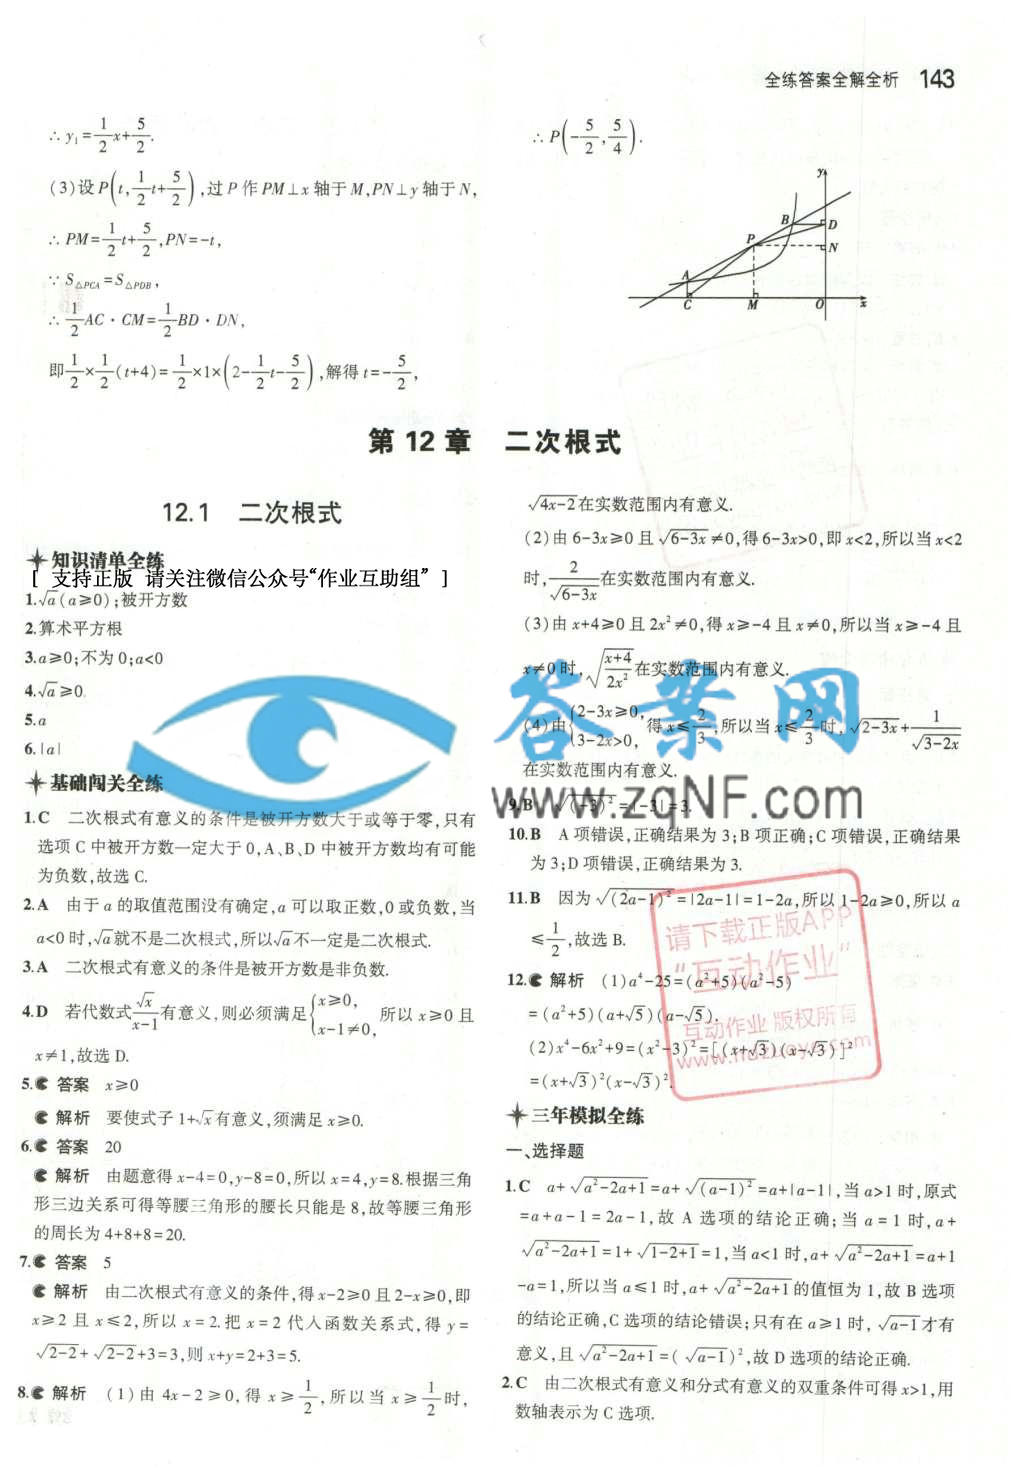 全练答案全解全析 143
∴y₁=1/2x+5/2.
(3)设P(t,1/2t+5/2),过P作PM⊥x轴于M,PN⊥y轴于N,
∴PM=1/2t+5/2,PN=-t,
∵S△PCA=S△PDB,
∴1/2AC·CM=1/2BD·DN,
即1/2×1/2(t+4)=1/2×1×(2-1/2t-5/2),解得t=-5/2,
∴P(-5/2,5/4).
y
B
D
P
N
A
C M O x
第12章 二次根式
12.1 二次根式
知识清单全练
[ 支持正版 请关注微信公众号“作业互助组” ]
1.√a(a≥0);被开方数
2.算术平方根
3.a≥0;不为0;a<0
4.√a≥0.
5.a
6.|a|
基础闯关全练
1.C 二次根式有意义的条件是被开方数大于或等于零,只有
选项C中被开方数一定大于0,A、B、D中被开方数均有可能
为负数,故选C.
2.A 由于a的取值范围没有确定,a可以取正数,0或负数,当
a<0时,√a就不是二次根式,所以√a不一定是二次根式.
3.A 二次根式有意义的条件是被开方数是非负数.
4.D 若代数式√x/(x-1)有意义,则必须满足{x≥0, x-1≠0, 所以x≥0且
x≠1,故选D.
5. 答案 x≥0
解析 要使式子1+√x有意义,须满足x≥0.
6. 答案 20
解析 由题意得x-4=0,y-8=0,所以x=4,y=8.根据三角
形三边关系可得等腰三角形的腰长只能是8,故等腰三角形
的周长为4+8+8=20.
7. 答案 5
解析 由二次根式有意义的条件,得x-2≥0且2-x≥0,即
x≥2且x≤2,所以x=2.把x=2代入函数关系式,得y=
√(2-2)+√(2-2)+3=3,则x+y=2+3=5.
8. 解析 (1)由4x-2≥0,得x≥1/2,所以当x≥1/2时,
√(4x-2)在实数范围内有意义.
(2)由6-3x≥0且√(6-3x)≠0,得6-3x>0,即x<2,所以当x<2
时,2/√(6-3x)在实数范围内有意义.
(3)由x+4≥0且2x²≠0,得x≥-4且x≠0,所以当x≥-4且
x≠0时,√((x+4)/(2x²))在实数范围内有意义.
(4)由{2-3x≥0, 3-2x>0, 得x≤2/3,所以当x≤2/3时,√(2-3x)+1/√(3-2x)
在实数范围内有意义.
9.B √(-3)²=|-3|=3.
10.B A项错误,正确结果为3;B项正确;C项错误,正确结果
为3;D项错误,正确结果为3.
11.B 因为√(2a-1)²=|2a-1|=1-2a,所以1-2a≥0,所以a
≤1/2,故选B.
12. 解析 (1)a⁴-25=(a²+5)(a²-5)
=(a²+5)(a+√5)(a-√5).
(2)x⁴-6x²+9=(x²-3)²=[(x+√3)(x-√3)]²
=(x+√3)²(x-√3)².
三年模拟全练
一、选择题
1.C a+√(a²-2a+1)=a+√(a-1)²=a+|a-1|,当a>1时,原式
=a+a-1=2a-1,故A选项的结论正确;当a=1时,a+
√(a²-2a+1)=1+√(1-2+1)=1,当a<1时,a+√(a²-2a+1)=a+1
-a=1,所以当a≤1时,a+√(a²-2a+1)的值恒为1,故B选项
的结论正确,C选项的结论错误;只有在a≥1时,√(a-1)才有
意义,且√(a²-2a+1)=(√(a-1))²,故D选项的结论正确.
2.C 由二次根式有意义和分式有意义的双重条件可得x>1,用
数轴表示为C选项.
答案网
www.zqNF.com
请下载正版APP
“互动作业”
互动作业 版权所有